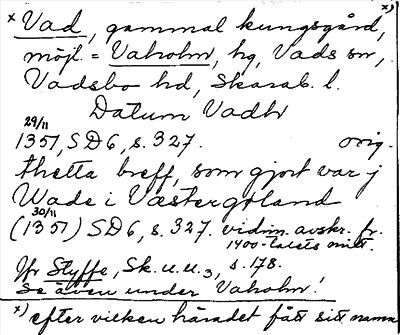 x Vad, gammal kungsgård, x)
möjl. = Vaholm, hg, Vads sn,
Vadsbo hd, Skarab. l.
Datum Vadh
29/11
1351, SD6, s. 327. orig.
thetta breff, som gjort var j
Wade i Væstergøland
30/11
(1351) SD6, s. 327. vidim. avskr. fr.
1400-talets mitt.
Jfr Styffe, Sk. u. u. 3, s. 178.
Se även under Vaholm!
x) efter vilken häradet fått sitt namn